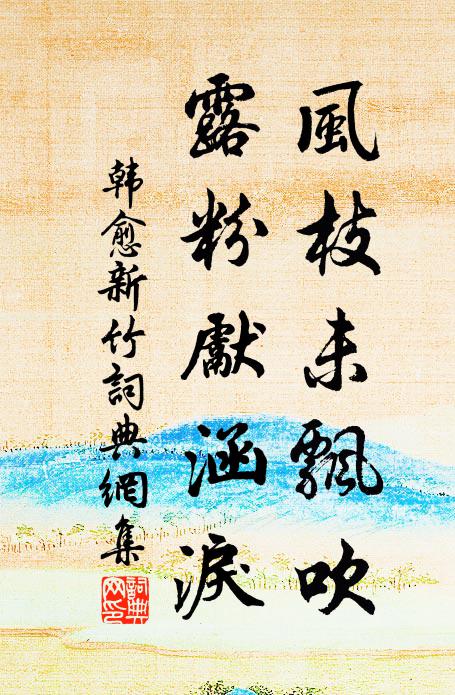 風枝未飄吹
露粉獻涵淚
韩愈新竹詞典網集
詞典
网印